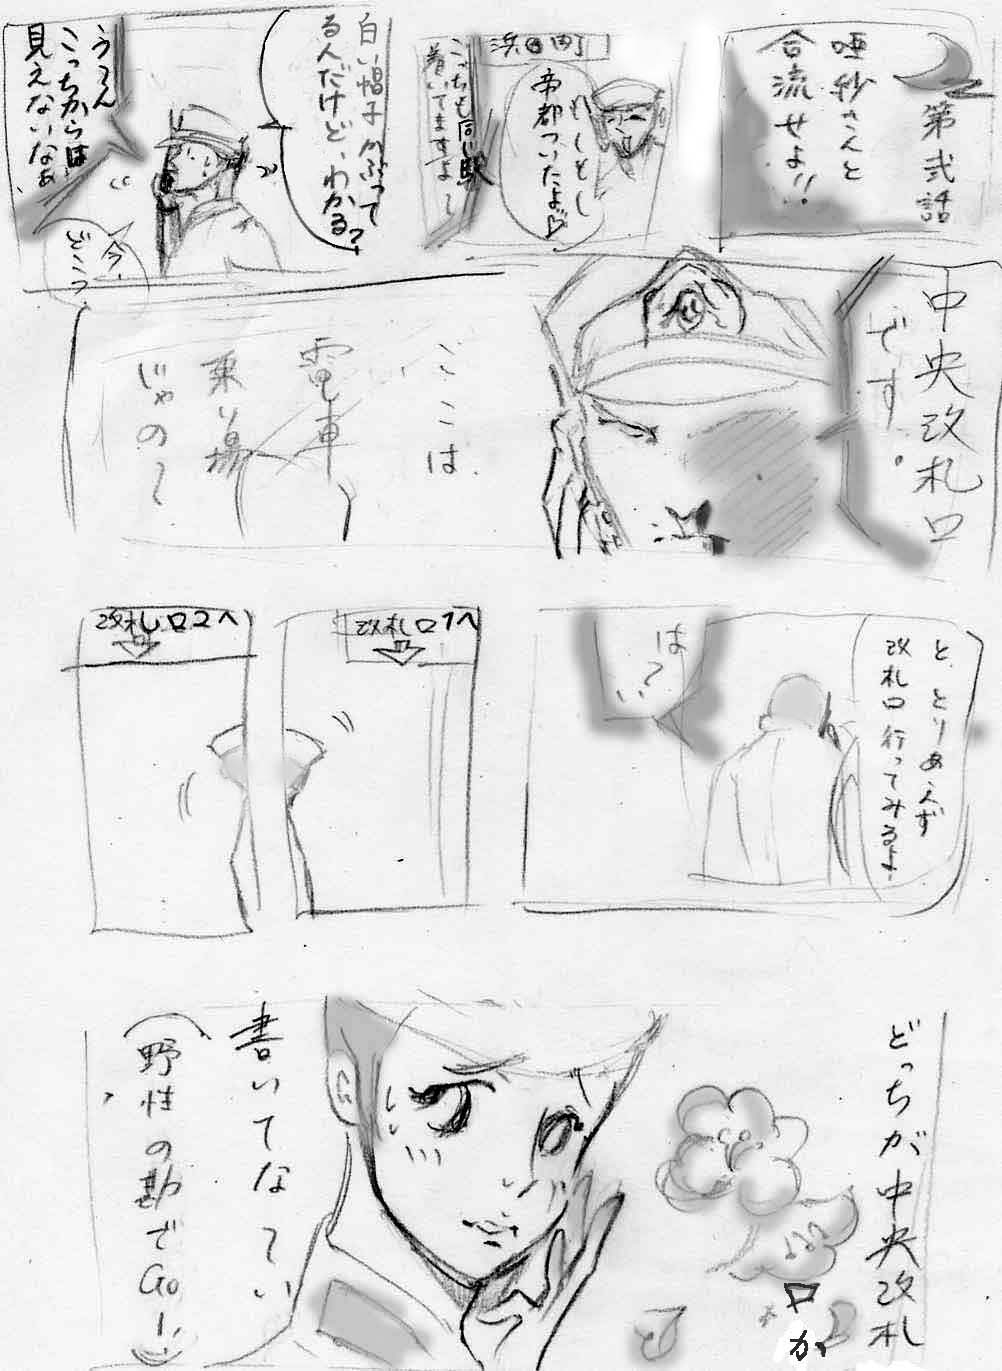 第弐話
唖紗さんと
合流せよ!!
浜田町
もしもし
帝都ついたよ♡
こっちも同じ駅
着いてますよ〜
白い帽子かぶって
る人だけど、わかる?
今、
どこっ
う〜ん
こっちからは
見えないなぁ
中央改札口
です。
ここは
電車
乗り場
じゃの〜
と、とりあえず
改札口行ってみるよ
は?
い
改札口1へ
改札口2へ
どっちが中央改札
口か
書いてな〜い
(野性の勘でGO!)